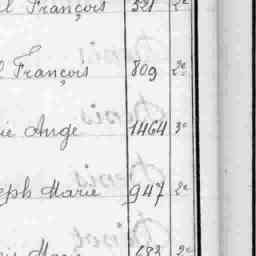 François 321 2e
François 809 2e
Ange 1464 3e
eph Marie 947 2e
Marie 183 2e